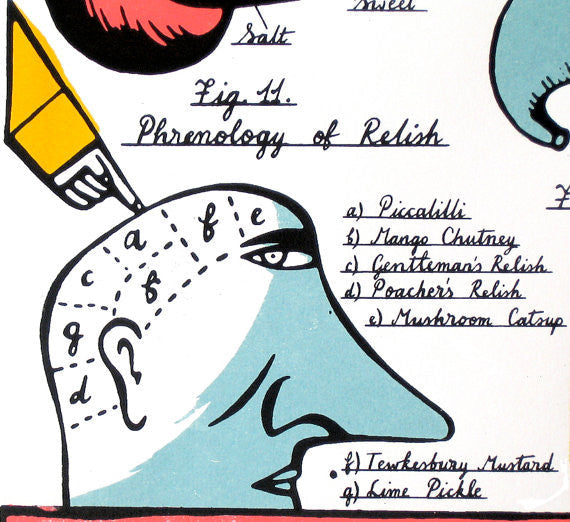 Sweet
Salt
Fig. 11.
Phrenology of Relish
a) Piccalilli
b) Mango Chutney
c) Gentleman's Relish
d) Poacher's Relish
e) Mushroom Catsup
f) Tewkesbury Mustard
g) Lime Pickle
a
f
e
c
b
g
d
F